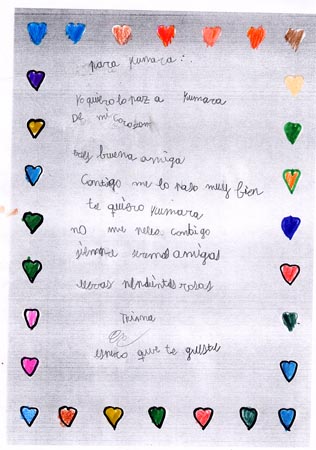 para Kumara:.
Yo quiero la paz a Kumara
De mi corazom
eres buena amiga
Contigo me lo paso muy bien
te quiero Kumara
no me peleo contigo
siempre seremos amigas
llevas pendientes rosas
espero que te guste